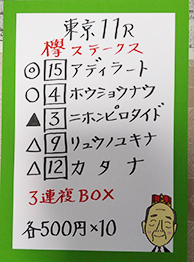 東京11R
欅ステークス
◎ 15 アディラート
○ 4 ホウショウナウ
▲ 3 ニホンピロタイド
△ 9 リュウノユキナ
△ 12 カタナ
3連複BOX
各500円×10